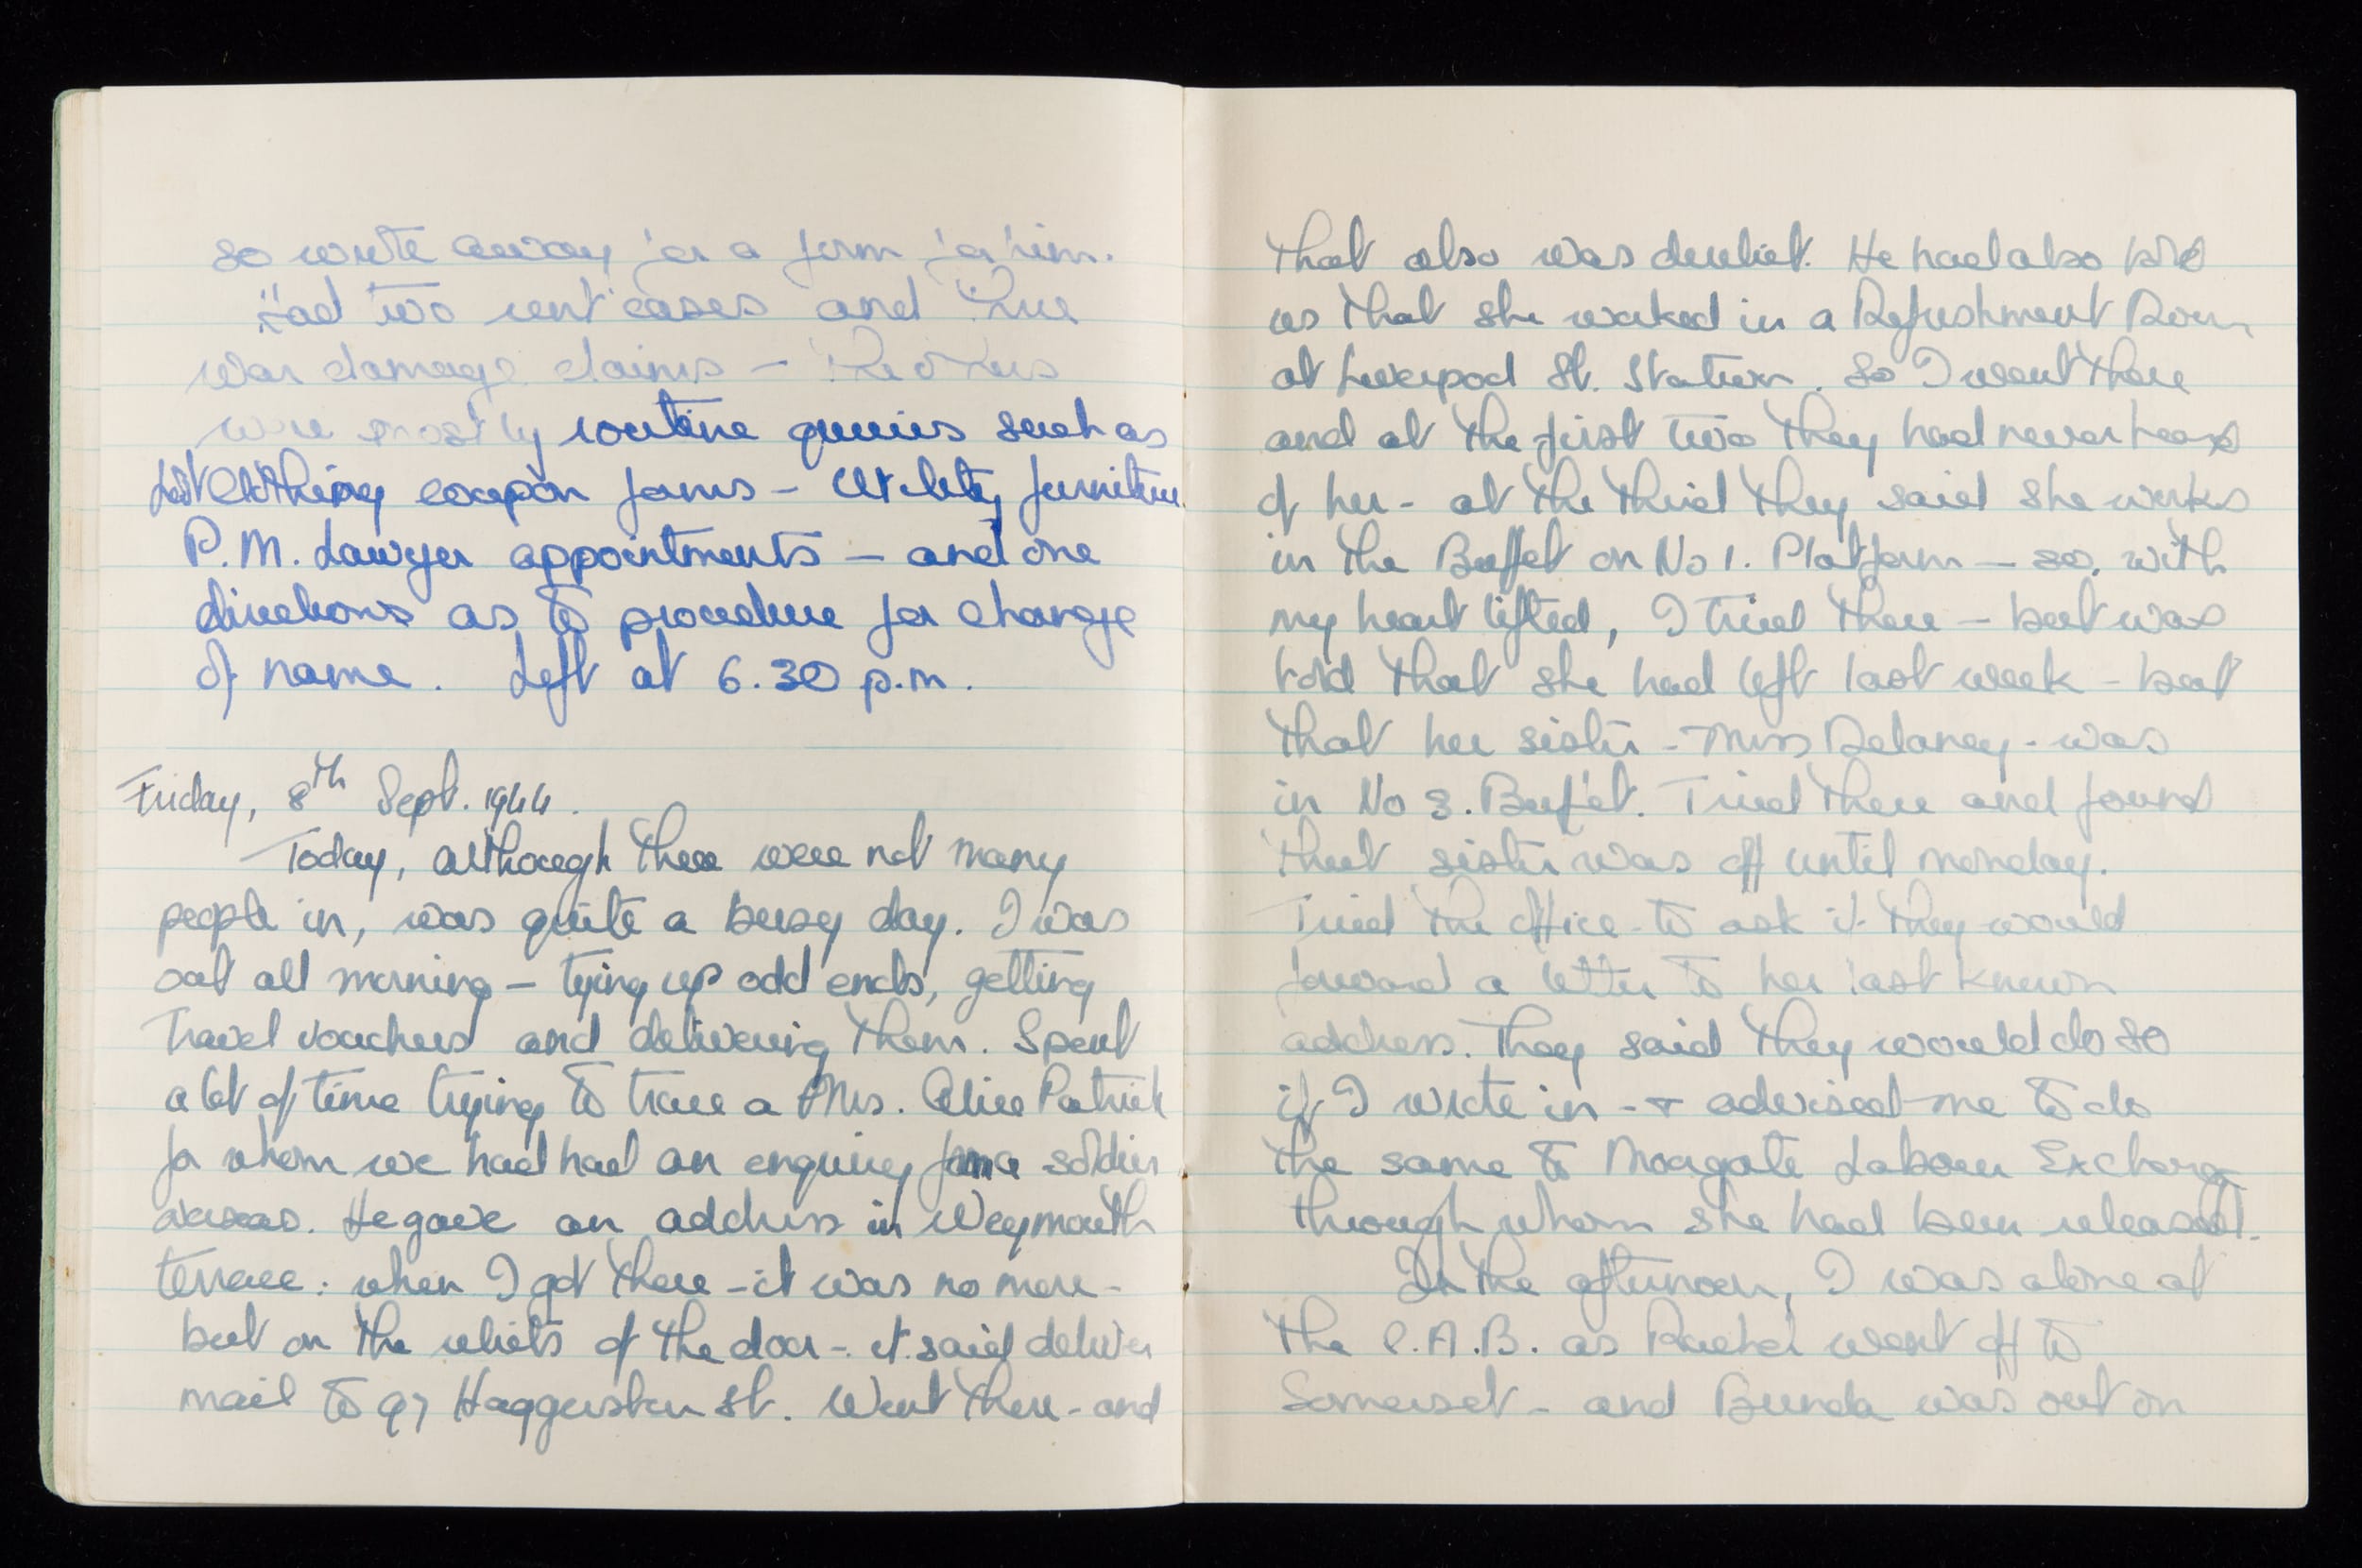 so wrote away for a form for him.
Had two rent cases and three
war damage claims - the others
were mostly routine queries such as
Lost Clothing coupon forms - Utility furniture
P.M. Lawyer appointments - and one
directions as to procedure for change
of name. Left at 6.30 p.m.
Friday, 8th Sept. 1944.
Today, although there were not many
people in, was quite a busy day. I was
out all morning - tying up odd ends, getting
Travel vouchers and delivering them. Spent
a lot of time trying to trace a Mrs. Alice Patrick
for whom we had had an enquiry from a soldier
overseas. He gave an address in Weymouth
terrace: when I got there - it was no more -
but on the relicts of the door - it said deliver
mail to 97 Haggerston St. Went there - and
that also was derelict. He had also told
us that she worked in a Refreshment Room
at Liverpool St. Station. So I went there
and at the first two they had never heard
of her - at the third they said she works
in the Buffet on No 1. Platform - so, with
my heart lifted, I tried there - but was
told that she had left last week - but
that her sister - Miss Delaney - was
in No 3. Buffet. Tried there and found
that sister was off until monday.
Tried the office - to ask if they would
forward a letter to her last known
address. They said they would do so
if I wrote in - + advised me to do
the same to Moorgate Labour Exchange
through whom she had been released.
In the afternoon, I was alone at
the C.A.B. as Rachel went off to
Somerset - and Bunda was out on